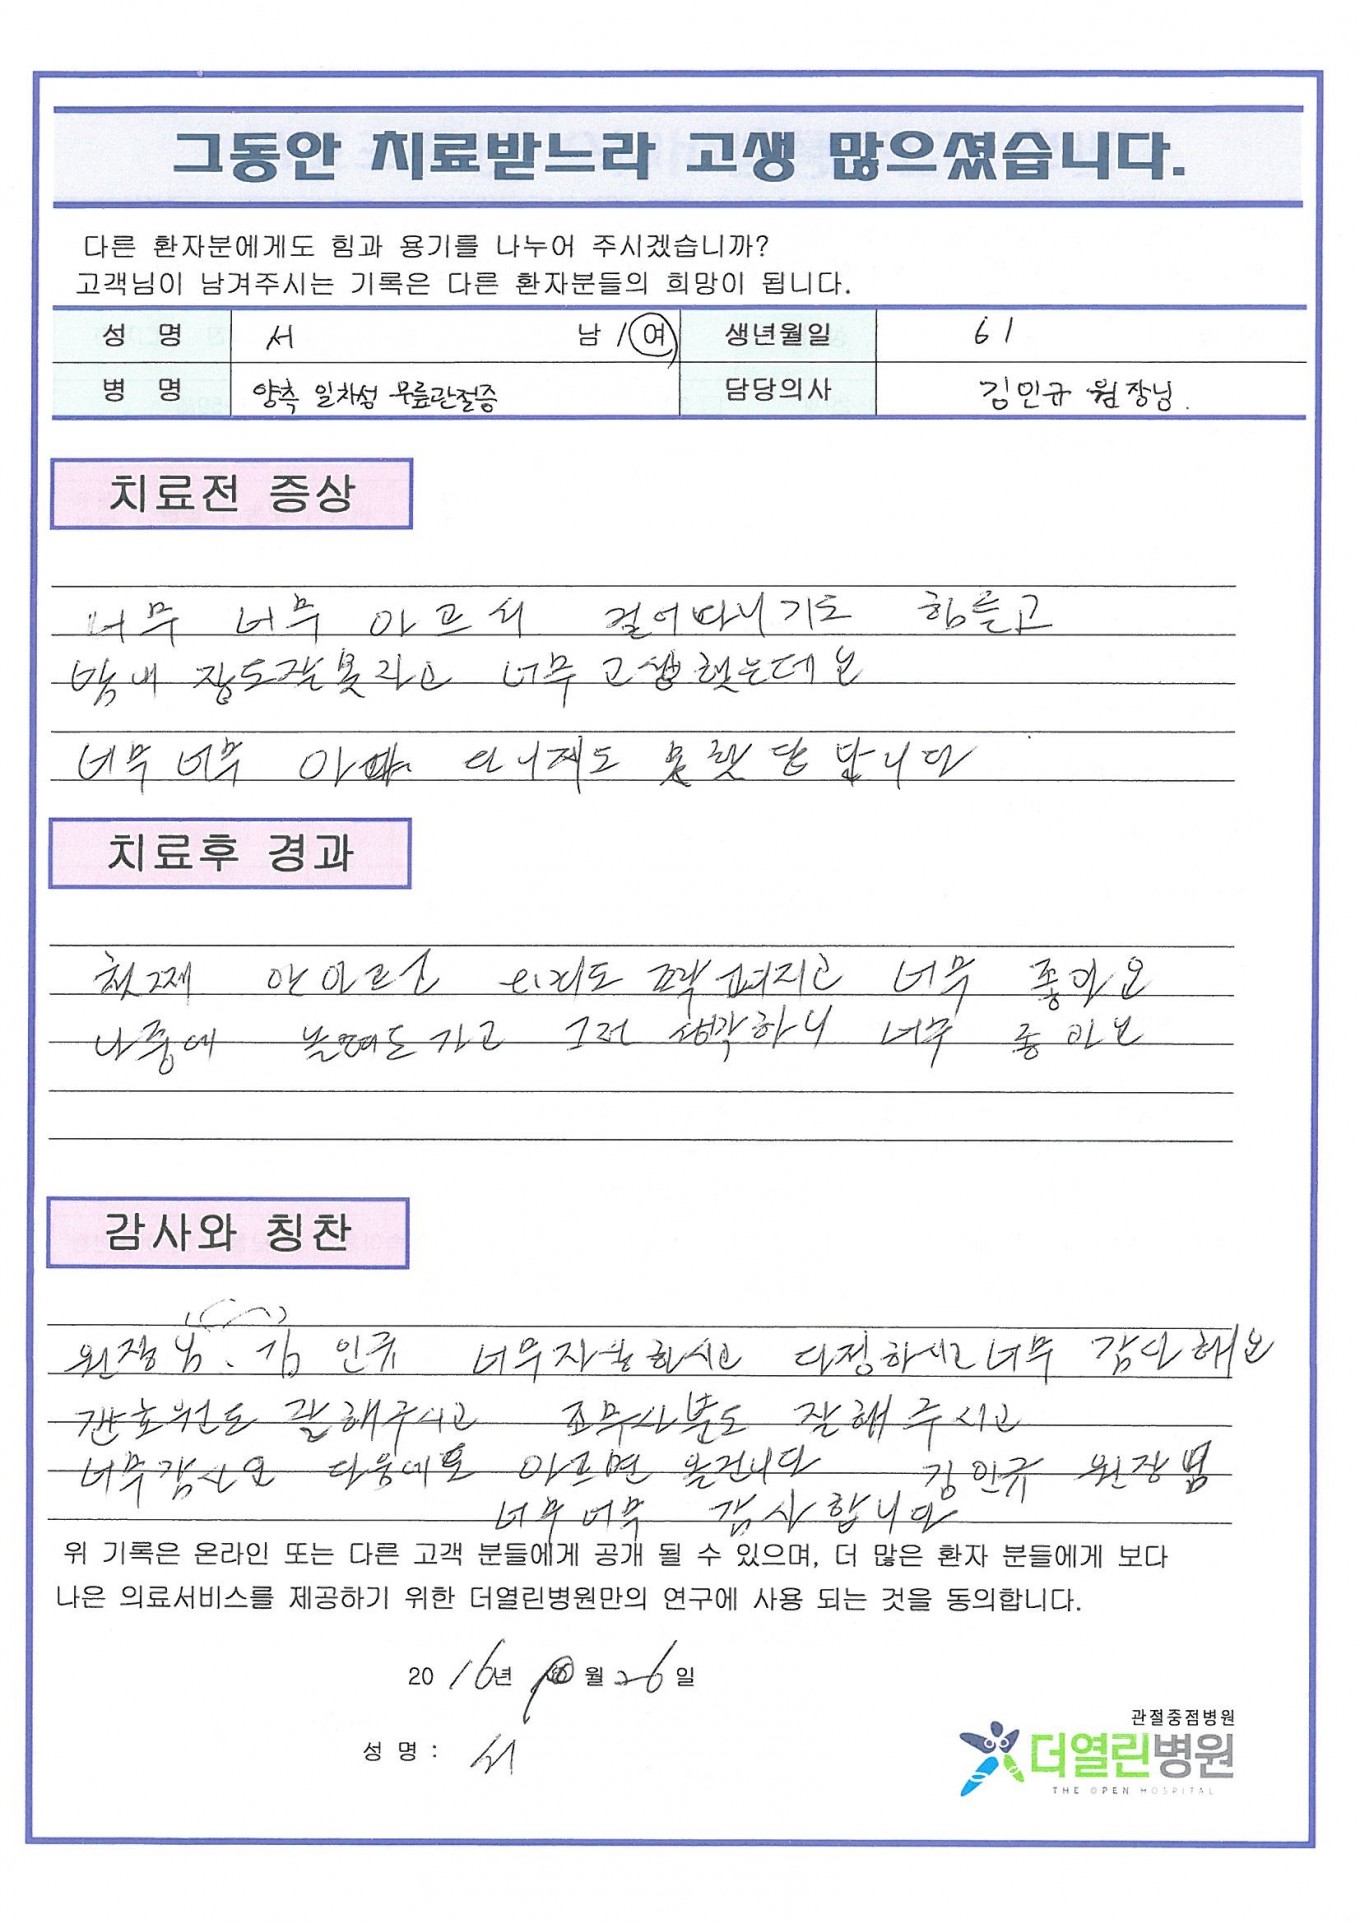 그동안 치료받느라 고생 많으셨습니다.
다른 환자분에게도 힘과 용기를 나누어 주시겠습니까?
고객님이 남겨주시는 기록은 다른 환자분들의 희망이 됩니다.
성 명 서 남 / 여 생년월일 61
병 명 양측 일차성 무릎관절증 담당의사 김민규 원장님.
치료전 증상
너무 너무 아프서 걸어다니기도 힘들고
밤내 잠도잘못자고 너무 고생했는데요
너무너무 아파 다니지도 못했답니다
치료후 경과
첫째 안아프고 다리도 쫙펴지고 너무 좋아요
나중에 놀러도가고 그런 생각하니 너무 좋아요
감사와 칭찬
원장님. 김인규 너무자상하시고 다정하시고너무 감사해요
간호원도 잘해주시고 조무사분도 잘해주시고
너무감사요 다음에도 아프면 올겁니다 김인규 원장님
너무너무 감사합니다
위 기록은 온라인 또는 다른 고객 분들에게 공개 될 수 있으며, 더 많은 환자 분들에게 보다
나은 의료서비스를 제공하기 위한 더열린병원만의 연구에 사용 되는 것을 동의합니다.
2016년 월 26일
성 명 : 서
관절중점병원
더열린병원
THE OPEN HOSPITAL